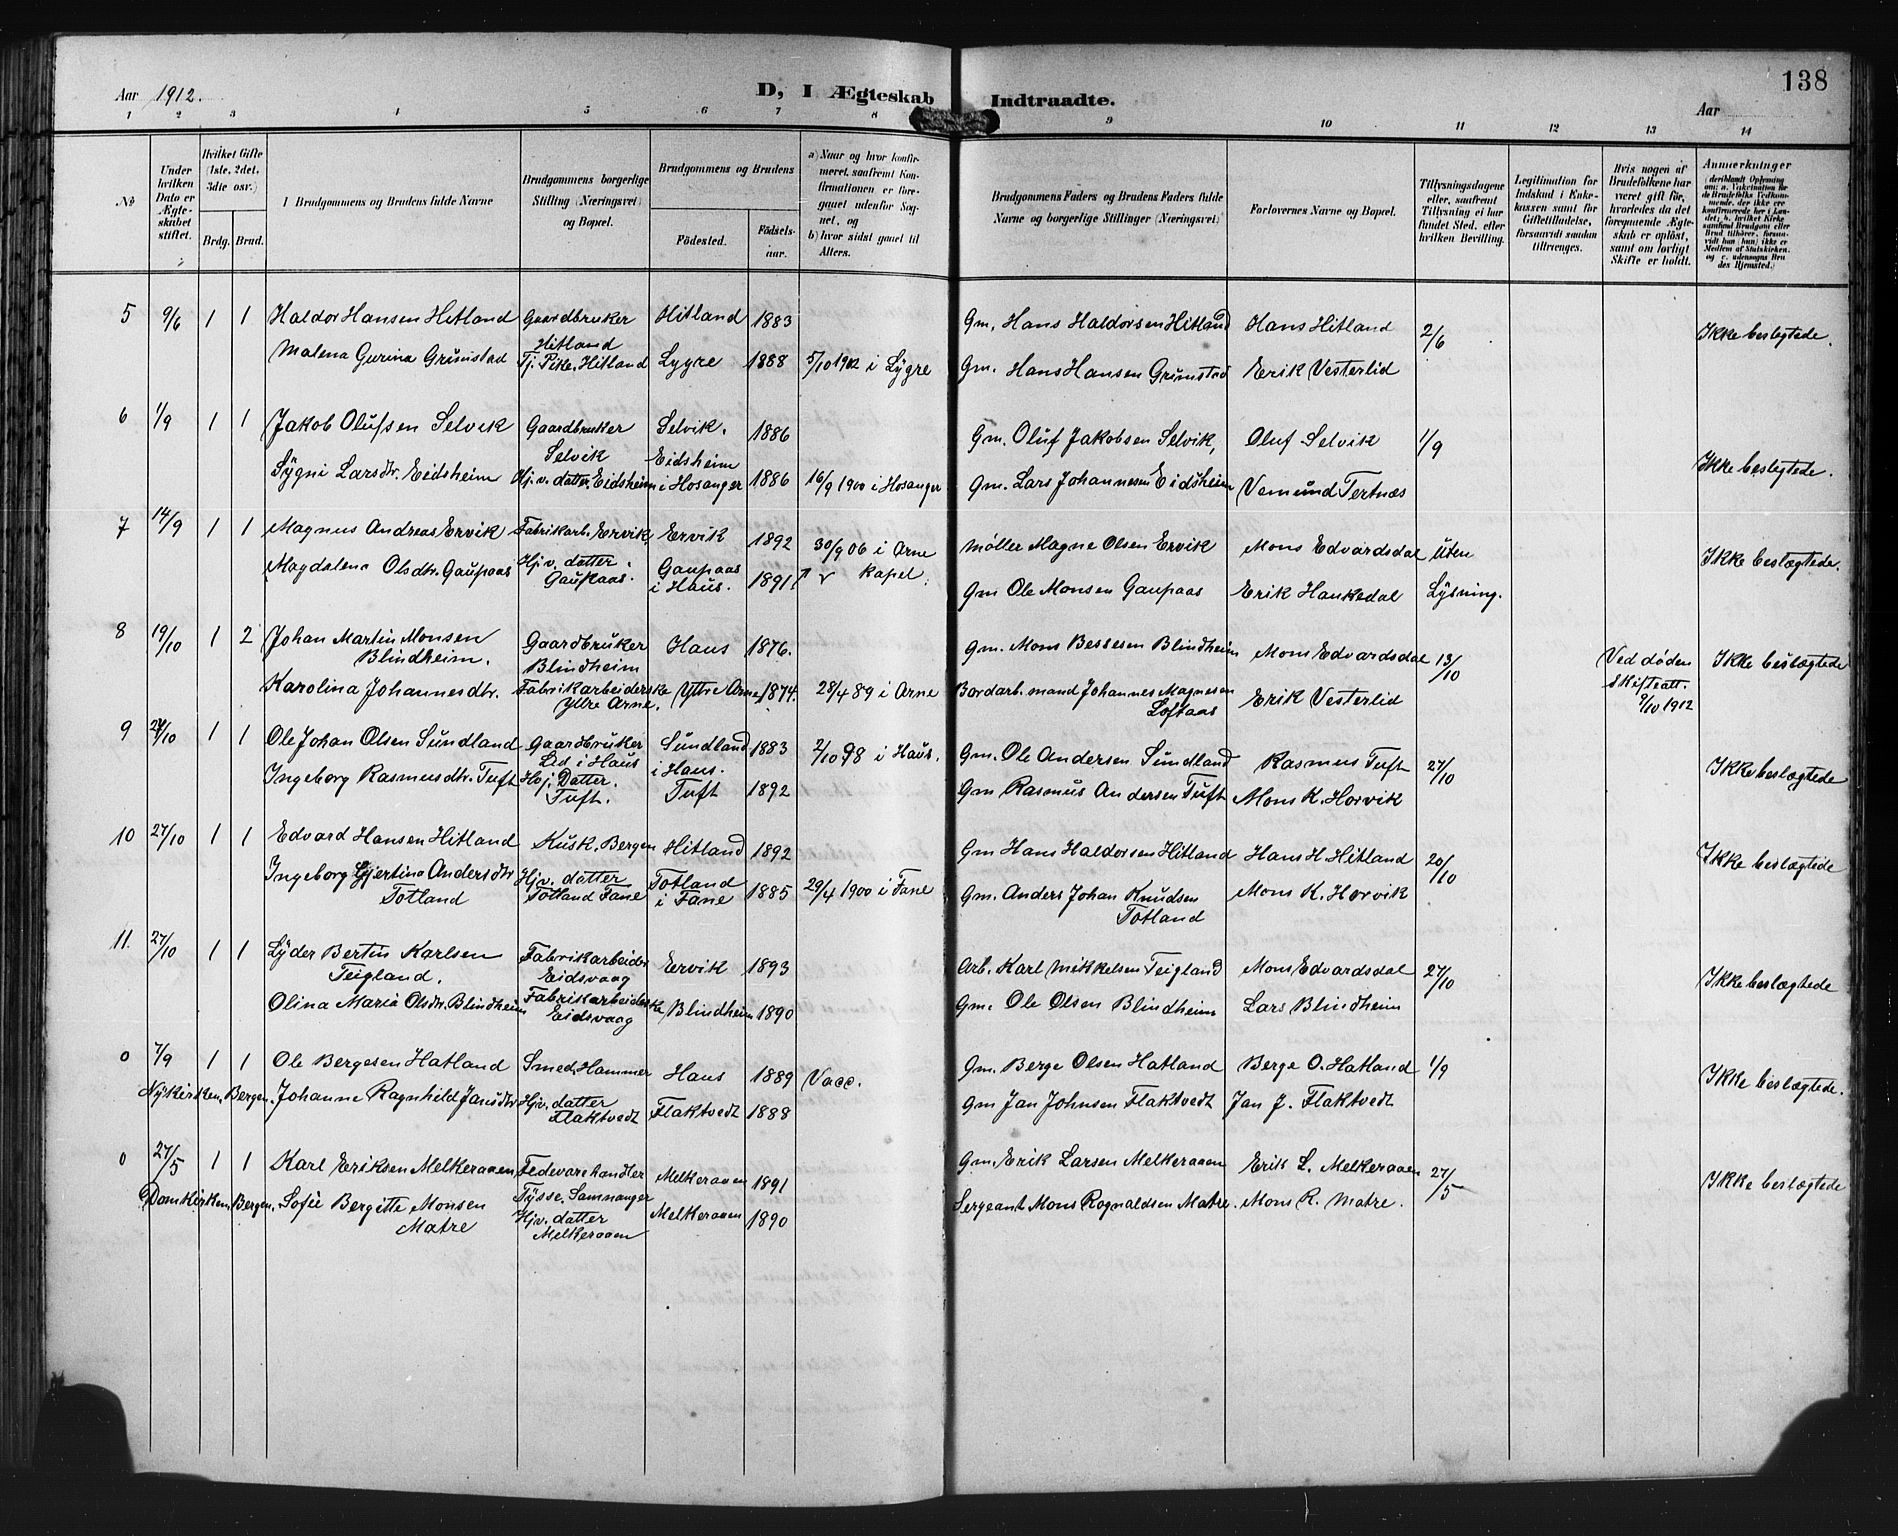 Aar 1912.
D, I Ægteskab Indtraadte.
138
Aar
1 2 3 4 5 6 7 8 9 10 11 12 13 14
No
Under hvilken Dato er Ægteskabet stiftet.
Hvilket Gifte (1ste, 2det, 3die osv.)
Brdg. Brud.
Brudgommens og Brudens fulde Navne
Brudgommens borgerlige Stilling (Næringsvei) og Bopæl.
Brudgommens og Brudens
Fødested. Fødselsaar.
a) Naar og hvor konfirmeret, saafremt Konfirmationen er foregaaet udenfor Sognet, og
b) hvor sidst gaaet til Alters.
Brudgommens Faders og Brudens Faders fulde Navne og borgerlige Stillinger (Næringsvei)
Forlovernes Navne og Bopæl.
Tillysningsdagene eller, saafremt Tillysning ei har fundet Sted, efter hvilken Bevilling.
Legitimation for Indskud i Enkekassen samt for Giftetilladelse, forsaavidt saadan tiltrænges.
Hvis nogen af Brudefolkene har været gift før, hvorledes da det foregaaende Ægteskab er opløst, samt om lovligt Skifte er holdt.
Anmærkninger
5 9/6 1 1 Haldor Hansen Hitland Gaardbruker Hitland Hitland 1883 Gm. Hans Haldorsen Hitland Hans Hitland 2/6 Ikke beslegtede.
Malena Gurina Grimstad Tj. Pike, Hitland Lygre 1888 5/10 1902 i Lygre Gm. Hans Hansen Grimstad Erik Vesterlid
6 1/9 1 1 Jakob Olufsen Selvik Gaardbruker Selvik Selvik. 1886 Gm. Oluf Jakobsen Selvik, Oluf Selvik 1/9 Ikke beslegtede.
Sygni Larsdtr. Eidsheim Hj. v. datter Eidsheim Eidsheim i Hosanger 1886 16/9 1900 i Hosanger Gm. Lars Johannesen Eidsheim Vemund Tertnæs
7 14/9 1 1 Magnus Andreas Ervik Fabrikarb. Ervik Ervik 1892 30/9 06 i Arne kapel. Møller Magne Olsen Ervik Mons Edvardsdal Uten Lysning. Ikke beslægtede.
Magdalena Olsdtr. Gaupaas Hj. v. datter. Gaupaas. Gaupaas i Haus. 1891 Gm Ole Monsen Gaupaas Erik Haukedal
8 19/10 1 2 Johan Martin Monsen Blindheim. Gaardbruker Blindheim Haus 1876. Gm. Mons Bessesen Blindheim Mons Edvardsdal 13/10 Ved døden Skifteatt. 9/10 1912 Ikke beslægtede
Karolina Johannesdtr. Fabrikarbeiderske Yttre Arne. Yttre Arne 1874. 28/4 89 i Arne Bordarb. mand Johannes Magnesen Loftaas Erik Vesterlid
9 27/10 1 1 Ole Johan Olsen Sundland Gaardbruker Lid i Haus Sundland i Haus. 1883 2/10 98 i Haus. Gm. Ole Andersen Sundland Rasmus Tuft 27/10 Ikke beslægtede
Ingeborg Rasmusdtr. Tuft Hvj. Datter. Tuft. Tuft 1892 Gm Rasmus Andersen Tuft Mons K. Horvik
10 27/10 1 1 Edvard Hansen Hitland Kusk. Bergen Hitland 1892 Gm Hans Haldorsen Hitland Hans H. Hitland 20/10 Ikke beslægtede
Ingeborg Gjertina Andersdtr Totland Hjv. datter Totland Fane Totland i Fane 1885 29/4 1900 i Fane Gm. Anders Johan Knudsen Totland Mons K. Horvik
11. 27/10 1 1 Lyder Bertin Karlsen Teigland. Fabrikarbeider Eidsvaag Ervik 1893 Arb. Karl Mikkelsen Teigland Mons Edvardsdal 27/10 Ikke beslægtede
Olina Maria Olsdtr. Blindheim Fabrikarbeiderske Eidsvaag Blindheim 1890 Gm. Ole Olsen Blindheim Lars Blindheim
0 7/9 1 1 Ole Bergesen Hatland Smed, Hammer Haus 1889 Vacc. Gm. Berge Olsen Hatland Berge O. Hatland 1/9 Ikke beslægtede.
Nykirken, Bergen. Johanne Ragnhild Jansdtr Hjv. datter Flaktvedt Flaktvedt 1888 Gm Jan Johnsen Flaktvedt Jan J. Flaktvedt
0 27/5 1 1 Karl Eriksen Melkeraaen Fedevarehandler Tysse, Samnanger Melkeraaen 1891 Gm. Erik Larsen Melkeraaen Erik L. Melkeraaen 27/5 Ikke beslægtede
Domkirken, Bergen. Sofie Bergitte Monsen Matre Hjv. datter Melkeraaen Melkeraaen 1890 Sergeant Mons Rognaldsen Matre. Mons R. Matre.